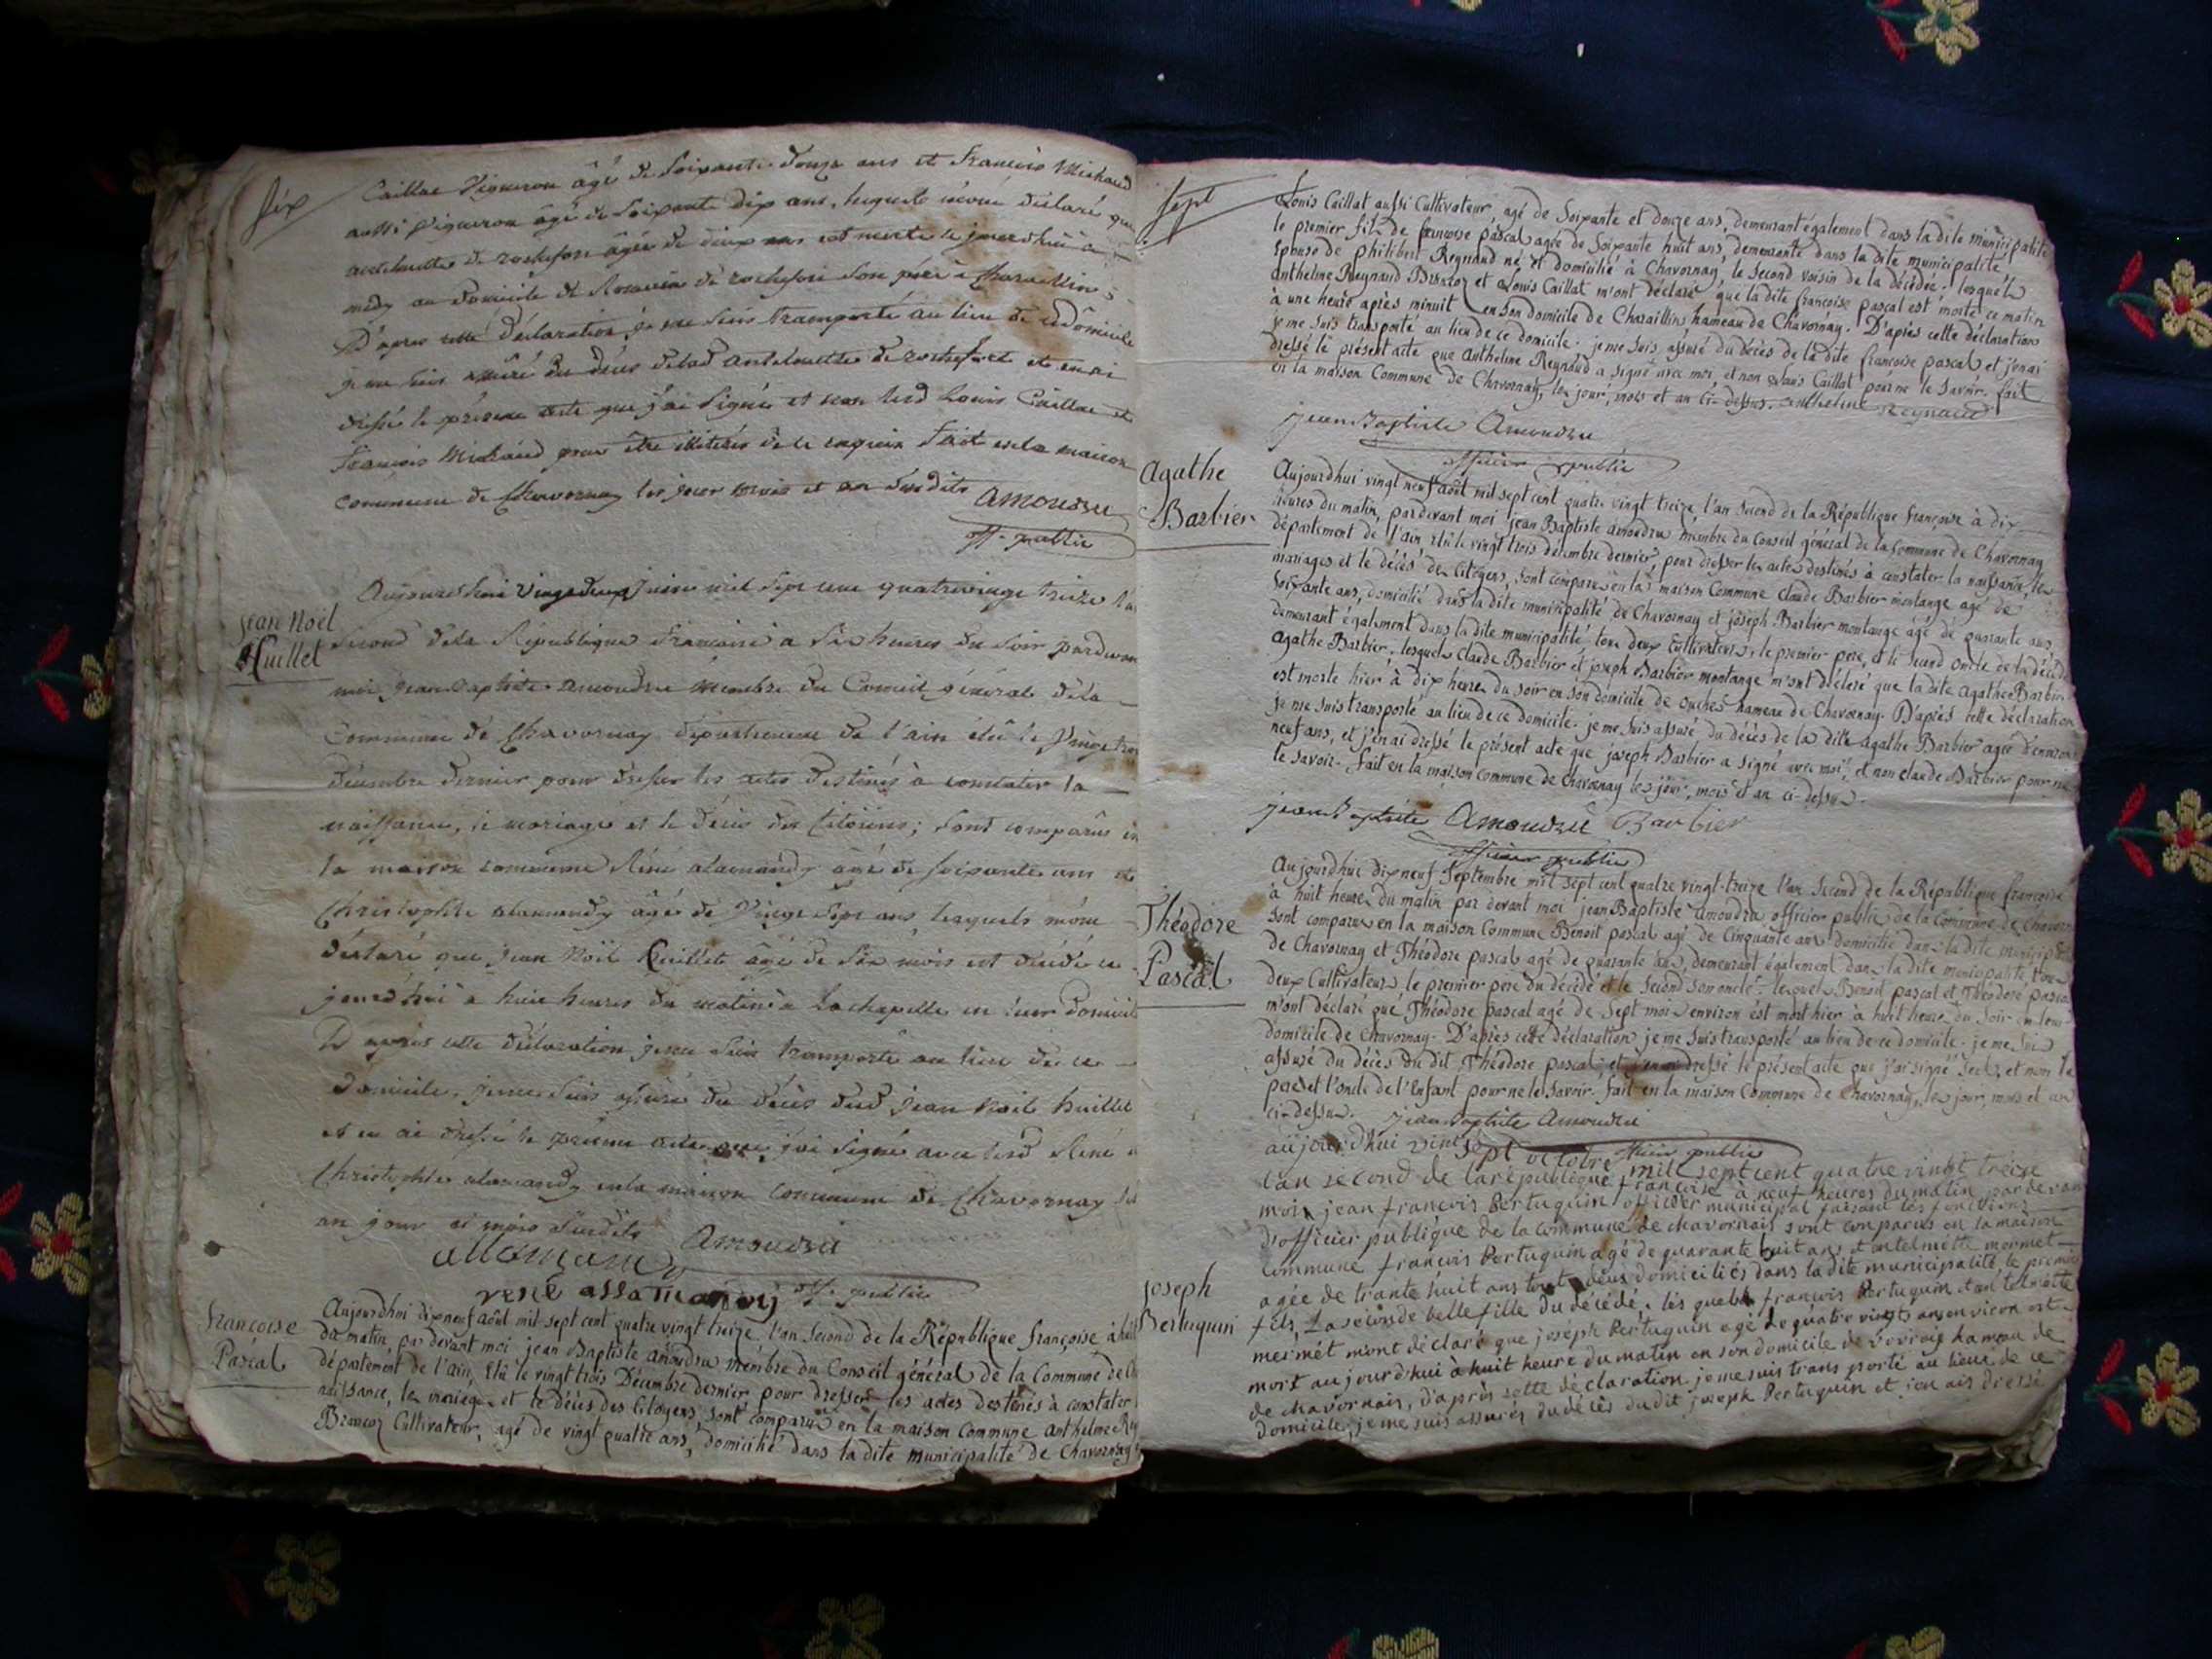 six
Caillat Vigneron âgé de soixante douze ans et François Michaud
aussi vigneron âgé de soixante dix ans, lesquels m'ont déclaré que
de rochefort âgée de deux ans est morte ce jourdhui à
au domicile de de rochefort son père à Charaillin
D'après cette déclaration, je me suis transporté au lieu de ce domicile
je me suis assuré du décès de lad antelmette de rochefort et en ai
dressé le présent acte que j'ai signé et non lesd Louis Caillat et
François Michaud pour être illiterés de le requis fait en la maison
commune de Chavornay les jour mois et an susdits Amoudru
off. public
Jean Noël
Huillet
Aujourdhui vingt deux juin mil sept cent quatrevingt treize l'an
second de la République française à six heures du soir pardevant
moi Jean Baptiste amoudru Membre du Conseil général de la
Commune de Chavornay département de l'ain élu le vingt trois
décembre dernier pour dresser les actes destinés à constater la
naissance, le mariage et le décès des citoïens; sont comparûs en
la maison commune Réné alamandy âgé de soixante ans et
Christophle alamandy âgé de vingt sept ans, lesquels m'ont
déclaré que Jean Noël huillet âgé de six mois est décédé ce
jourd'hui à huit heures du matin à la chapelle en leur domicile
D'après cette déclaration je me suis transporté au lieu de ce
domicile, je me suis assuré du décès dud Jean Noël huillet
et en ai dressé le présent acte que j'ai signé avec lesd Réné et
Christophle alamandy en la maison commune de Chavornay les
an jour et mois susdits Amoudru
allamand
rené allamandy off. public
françoise
Pascal
Aujourdhui dixneuf août mil sept cent quatre vingt treize, l'an second de la République françoise, à huit
du matin, par devant moi jean Baptiste amoudru membre du Conseil général de la Commune de
département de l'Ain, Elû le vingt trois Décembre dernier pour dresser les actes destinés à constater
naissance, les mariages et le décès des Citoyens, sont comparus en la maison Commune Anthelme Rey
Brancoz Cultivateur, agé de vingt quatre ans, domicilié dans la dite municipalité de Chavornay
sept
Louis Caillat aussi Cultivateur, agé de Soixante et douze ans, demeurant également dans la dite municipalité
le premier fils de françoise pascal agée de Soixante huit ans, demeurante dans la dite municipalité,
épouse de philibert Reynaud né et domicilié à Chavornay, le second voisin de la décédée. lesquels
Anthelme Reynaud Brancoz et Louis Caillat m'ont déclaré que la dite françoise pascal est morte ce matin
à une heure après minuit en son domicile de Charaillin hameau de Chavornay. D'après cette déclaration
je me suis transporté au lieu de ce domicile. je me suis assuré du décès de la dite françoise pascal et j'en ai
dressé le présent acte que Anthelme Reynaud a signé avec moi, et non Louis Caillat pour ne le savoir. fait
en la maison Commune de Chavornay, les jour, mois et an ci-dessus. anthelme Reynaud
jean Baptiste Amoudru
officier public
Agathe
Barbier
Aujourdhui vingt neuf août mil sept cent quatre vingt treize, l'an second de la République françoise à dix
heures du matin, pardevant moi jean Baptiste amoudru membre du Conseil général de la Commune de Chavornay
département de l'ain elû le vingt trois décembre dernier, pour dresser les actes destinés à constater la naissance, les
mariages et le décès des Citoyens, sont comparus en la maison Commune Claude Barbier montange agé de
Soixante ans, domicilié dans la dite municipalité de Chavornay et joseph Barbier montange âgé de quarante ans,
demeurant également dans la dite municipalité, tous deux Cultivateurs, le premier pere, et le second oncle de la décédée
Agathe Barbier. lesquels Claude Barbier et joseph Barbier montange m'ont déclaré que la dite agathe Barbier
est morte hier à dix heures du soir en son domicile de ouches hameau de Chavornay. D'après cette déclaration
je me suis transporté au lieu de ce domicile. je me suis assuré du décès de la dite agathe Barbier agée d'environ
neuf ans, et j'en ai dressé le présent acte que joseph Barbier a signé avec moi, et non Claude Barbier pour ne
le savoir. fait en la maison Commune de Chavornay les jour, mois et an ci-dessus.
jean Baptiste Amoudru Barbier
officier public
Théodore
Pascal
Aujourdhui dixneuf Septembre mil sept cent quatre vingt-treize l'an second de la République françoise
à huit heures du matin par devant moi jean Baptiste amoudru officier public de la Commune de Chavornay
sont comparus en la maison Commune Benoit pascal agé de Cinquante ans domicilié dans la dite municipalité
de Chavornay et Théodore pascal agé de quarante ans, demeurant également dans la dite municipalité, tous
deux Cultivateurs, le premier pere du décédé et le second son oncle. lesquels Benoit pascal et Théodore pascal
m'ont déclaré que Théodore pascal agé de sept mois environ est mort hier à huit heures du soir en leur
domicile de Chavornay. D'après cette déclaration je me suis transporté au lieu de ce domicile. je me suis
assuré du décès du dit Théodore pascal, et j'en ai dressé le présent acte que j'ai signé seul, et non le
pere et l'oncle de l'Enfant pour ne le savoir. fait en la maison Commune de Chavornay, les jour, mois et an
ci-dessus. jean Baptiste Amoudru
officier public
joseph
Bertuquin
aujourd'hui vint sept octobre mil sept cent quatre vingt treize
l'an second de la république françoise à neuf heures du matin par devant
moi jean françois Pertuquin officier municipal faisant les fonctions
d'officier publique de la commune de chavornais sont conparus en la maison
commune francois Pertuquin agé de quarante huit ans et antelmette mermet
agée de trante huit ans tout deus domiciliés dans la dite municipalité, le premier
fils, la seconde belle fille du décédé. lés quels francois Pertuquin et antelmette
mermet m'ont déclaré que joseph Pertuquin agé de quatre vingts ans environ est
mort aujourd'hui à huit heure du matin en son domicile de vovray hameau de
de chavornais, d'après cette déclaration je me suis trans porté au lieux de ce
domicile, je me suis assurés du décès du dit joseph Pertuquin et j'en ais dressé